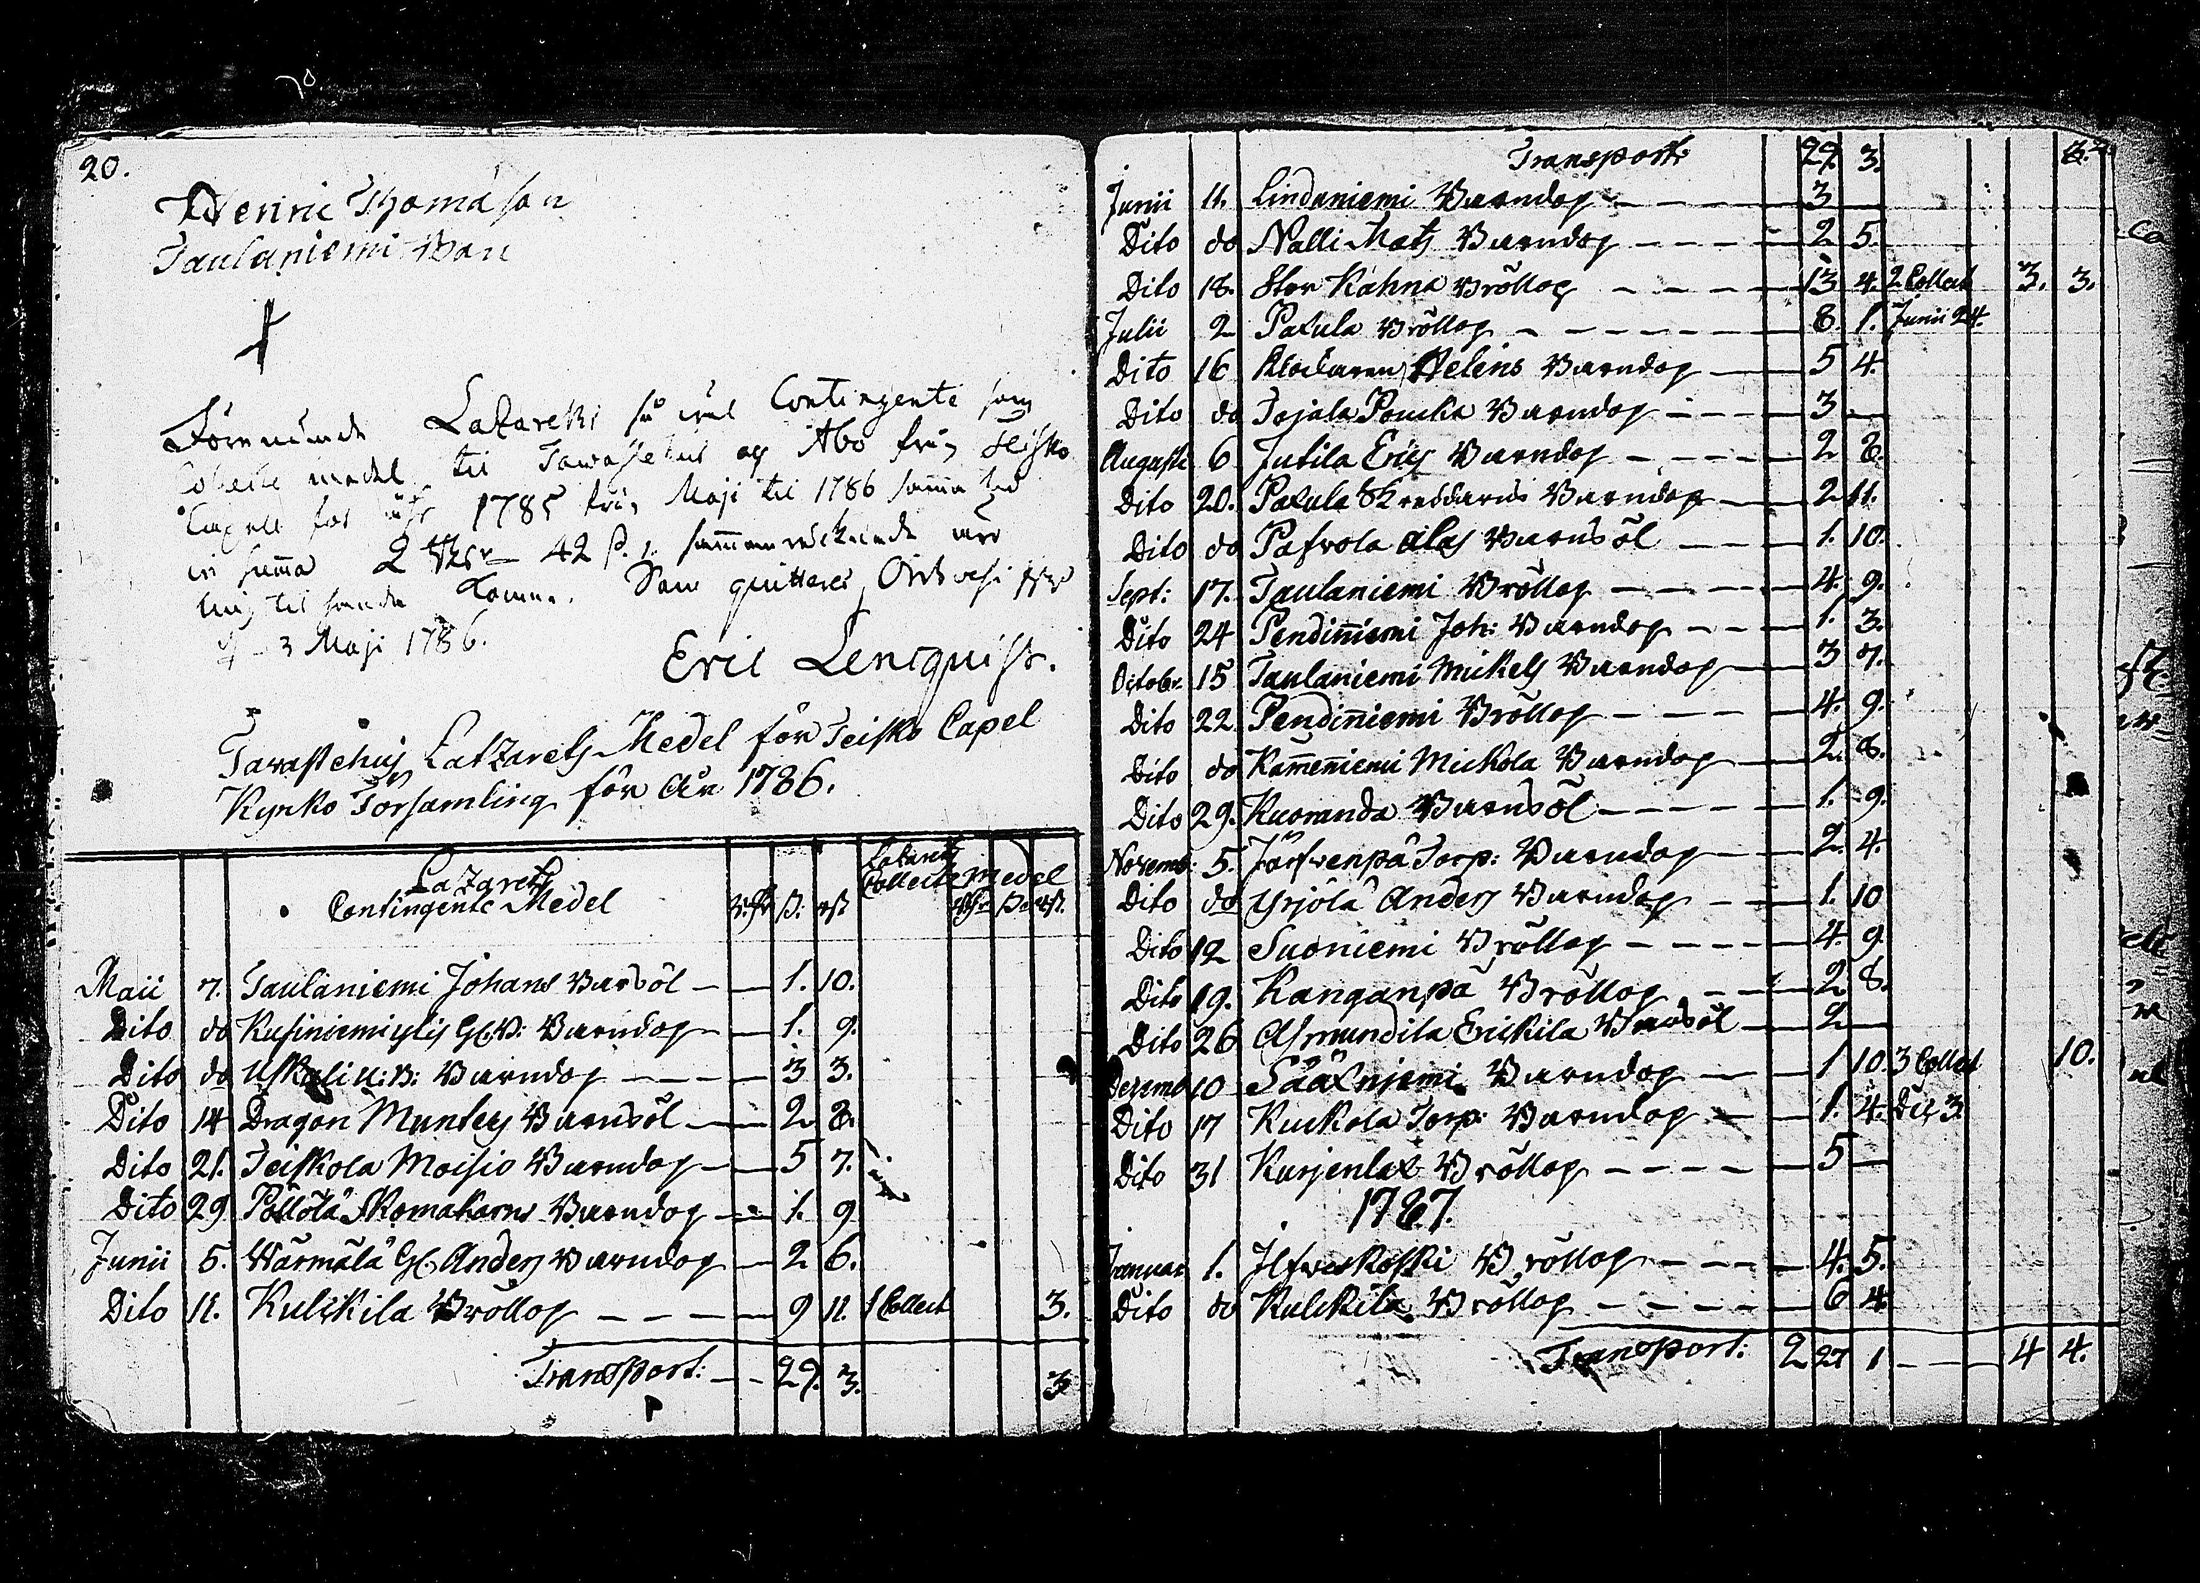 20.
Henric Thomasson
Taulaniemi Van
Förenämde Lazaretts såväl Contingents som
Collecte medel til Tawastehus og Åbo från Teisko
Capell för åhr 1785 från Maji til 1786 samma tid
in summa 2 42 ß. 1. sammanräcknade äro
mig til handa komne. Som quitteras Orivesi
d 3 Maji 1786.
Eric Lencquist.
Tavastehus Latzaretz Medel för Teisko Capel
Kyrko Församling för År 1786.
Lazaretz Contingente Medel ß. Lazaretz Collecte medel
Maii 7. Taulaniemi Johans Barsöl — 1. 10.
Dito do Kusiniemi Barndop — 1. 9.
Dito do Uskali Barndop — 3 3.
Dito 14 Dragon Munters Barnsöl — 2 8.
Dito 21. Teiskola Moisio Barndop — 5 7.
Dito 29 Pöllölä Skomakarns Barndop — 1. 9
Junii 5. Wärmälä Gl. Anders Barndop — 2 6.
Dito 11. Kulikila Bröllop — 9 11. 1 Collect 3.
Transport: — 29. 3. 3
Transport: 29. 3.
Junii 11. Lindaniemi Barndop — 3 —
Dito do Nalli Mats Barndop — 2 5.
Dito 18. Stor Kahna Bröllop — 13 4. 2 Collect 3. 3.
Julii 2 Paxula Bröllop — 8. 1. Junii 24.
Dito 16 Klockaren Helins Barndop — 5 4.
Dito do Tojala Barndop — 3 —
Augusti 6 Jutila Erics Barndop — 2 8.
Dito 20. Paxula Skreddarens Barndop — 2 11.
Dito do Pafvola Barnsöl — 1. 10.
Sept: 17. Taulaniemi Bröllop — 4. 9.
Dito 24 Pendinniemi Joh: Barndop — 1. 3.
Octobr. 15 Taulaniemi Mickels Barndop — 3 7.
Dito 22 Pendinniemi Bröllop — 4. 9.
Dito do Kammenniemi Mickola Barndop — 2. 8.
Dito 29. Kuoranda Barnsöl — 1. 9.
Novemb: 5. Järfvenpä Torp: Barndop — 2. 4.
Dito do Yrjölä Anders Barndop — 1. 10
Dito 12 Suoniemi Bröllop — 4. 9.
Dito 19. Kanganpä Bröllop — 2 8.
Dito 26 Asmundila Erickila Barnsöl — 2 —
Decemb 10 Sääxniemi Barndop — 1 10. 3 Collect 10.
Dito 17 Kuckola Torp: Barndop — 1. 4. Dec 3.
Dito 31 Kurjenlax Bröllop — 5 —
1787.
Januar 1. Ilfveskoski Bröllop — 4. 5.
Dito do Kulckila Bröllop — 6 4.
Transport: 2 27 1 — 4 4.